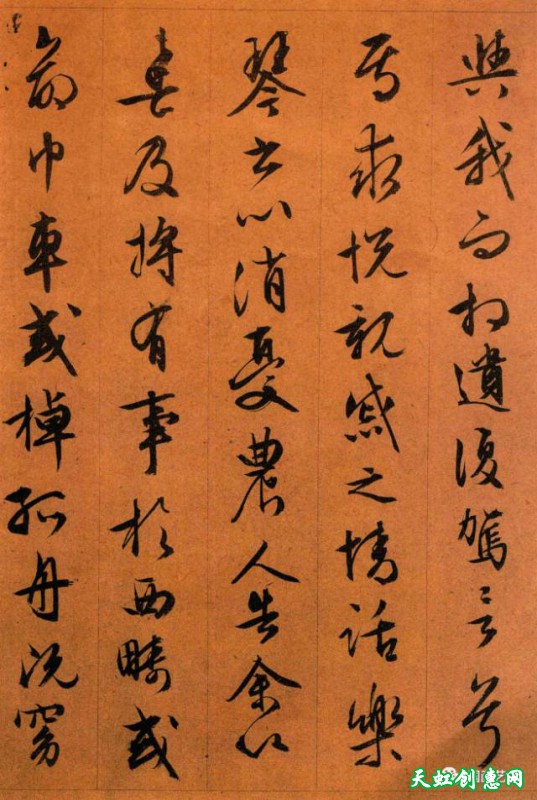 與我而相遺復駕言兮
焉求悅親戚之情話樂
琴書以消憂農人告余以
春及將有事於西疇或
命巾車或棹孤舟既窈
天虹创惠网